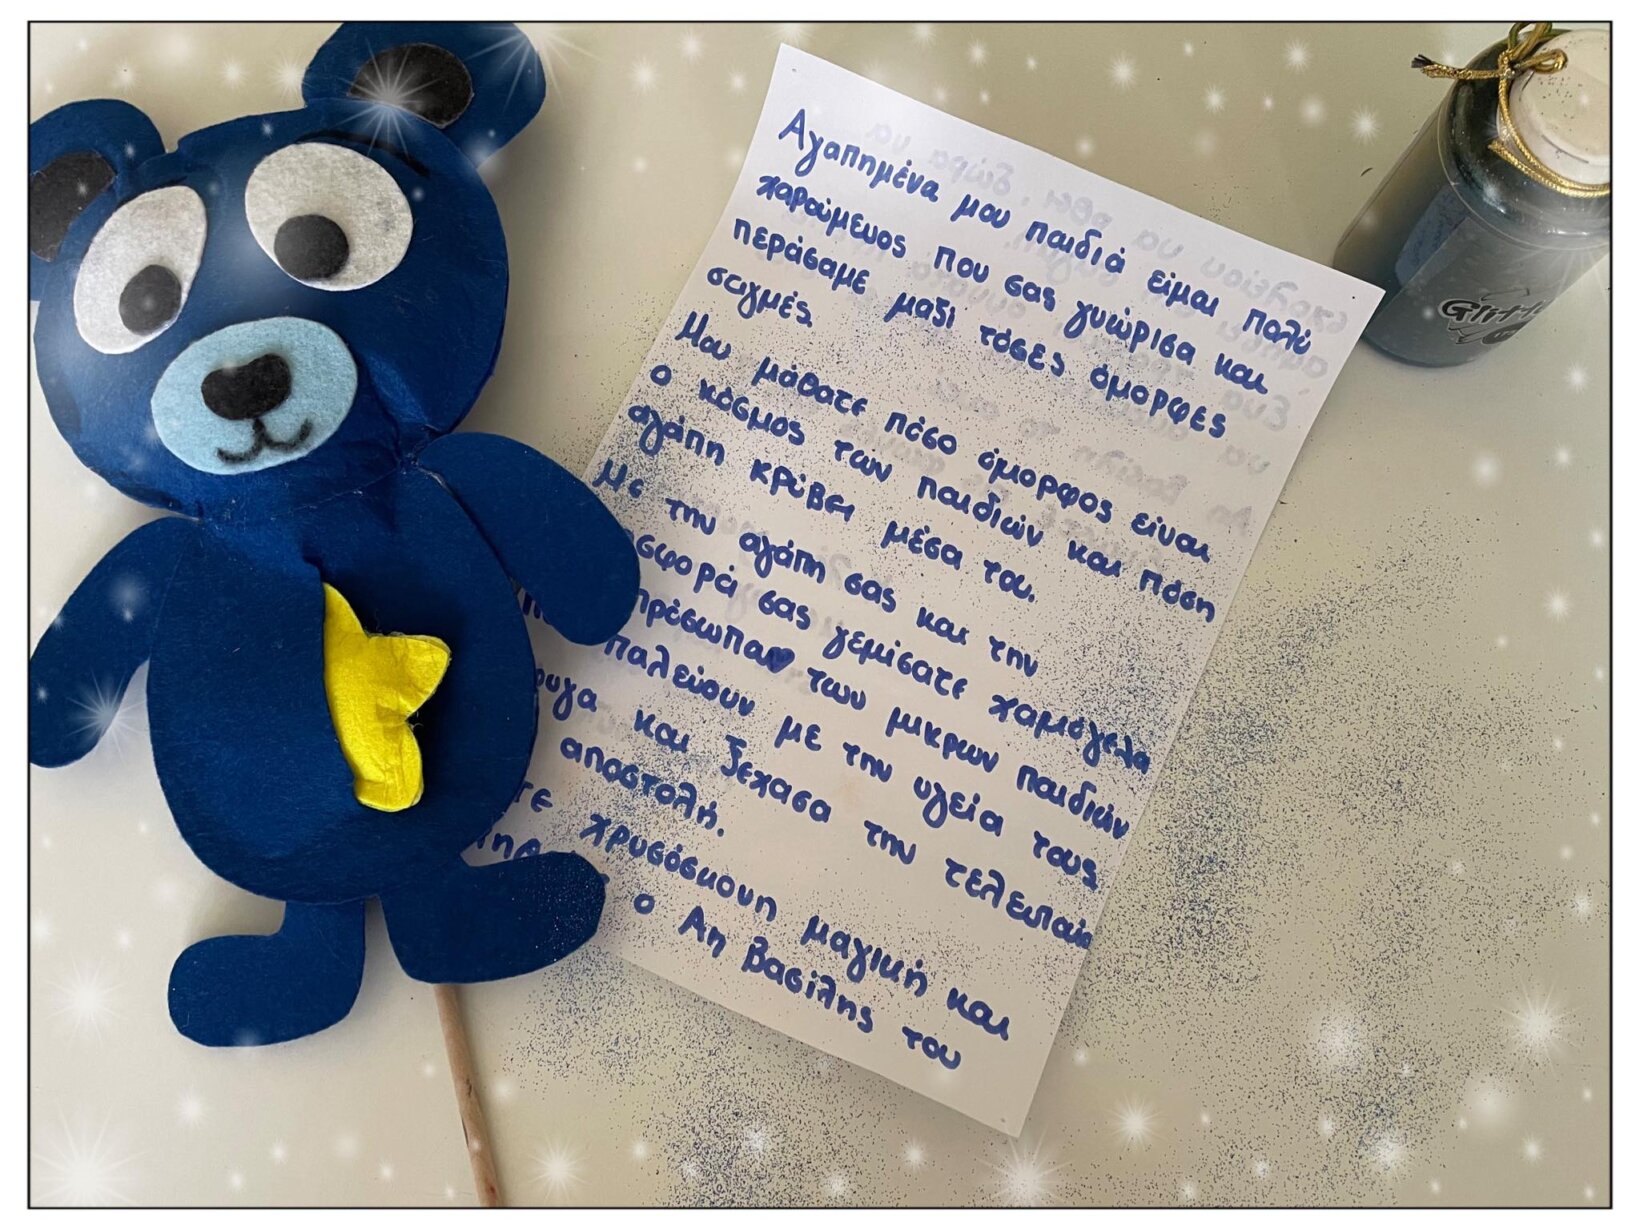 Αγαπημένα μου παιδιά είμαι πολύ
χαρούμενος που σας γνώρισα και
περάσαμε μαζί τόσες όμορφες
στιγμές
Μου μάθατε πόσο όμορφος είναι
ο κόσμος των παιδιών και πόση
αγάπη κρύβει μέσα του.
Με την αγάπη σας και την
σφορά σας γεμίσατε χαμόγελα
πρόσωπα των μικρων παιδιών
παλεύουν με την υγεία τους
ρυγα και ξεχασα την τελευταία
αποστολή.
τε χρυσόσκονη μαγική και
ο Αη Βασίλης του